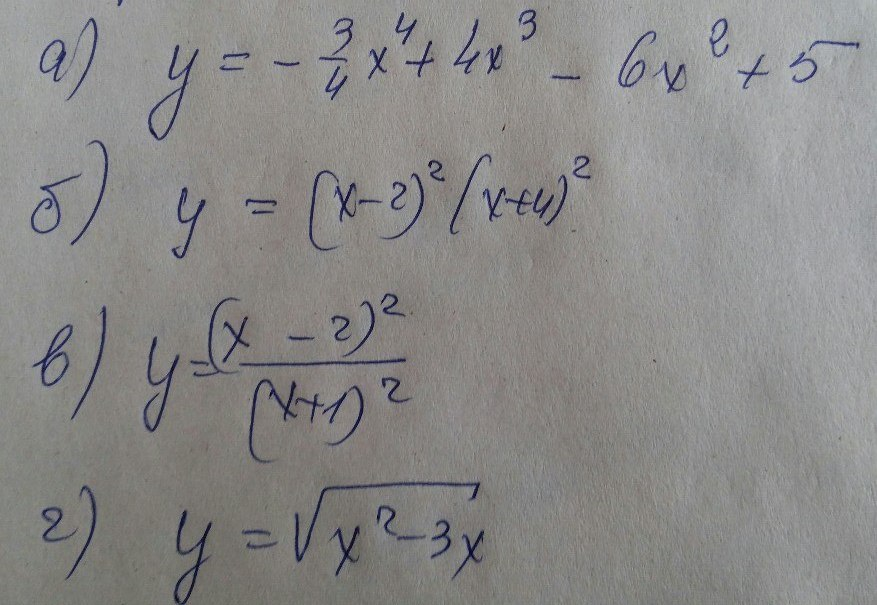 а) y = - 3/4 x⁴ + 4x³ - 6x² + 5
б) y = (x-2)² (x+4)²
в) y = (x - 2)² / (x+1)²
г) y = √(x² - 3x)